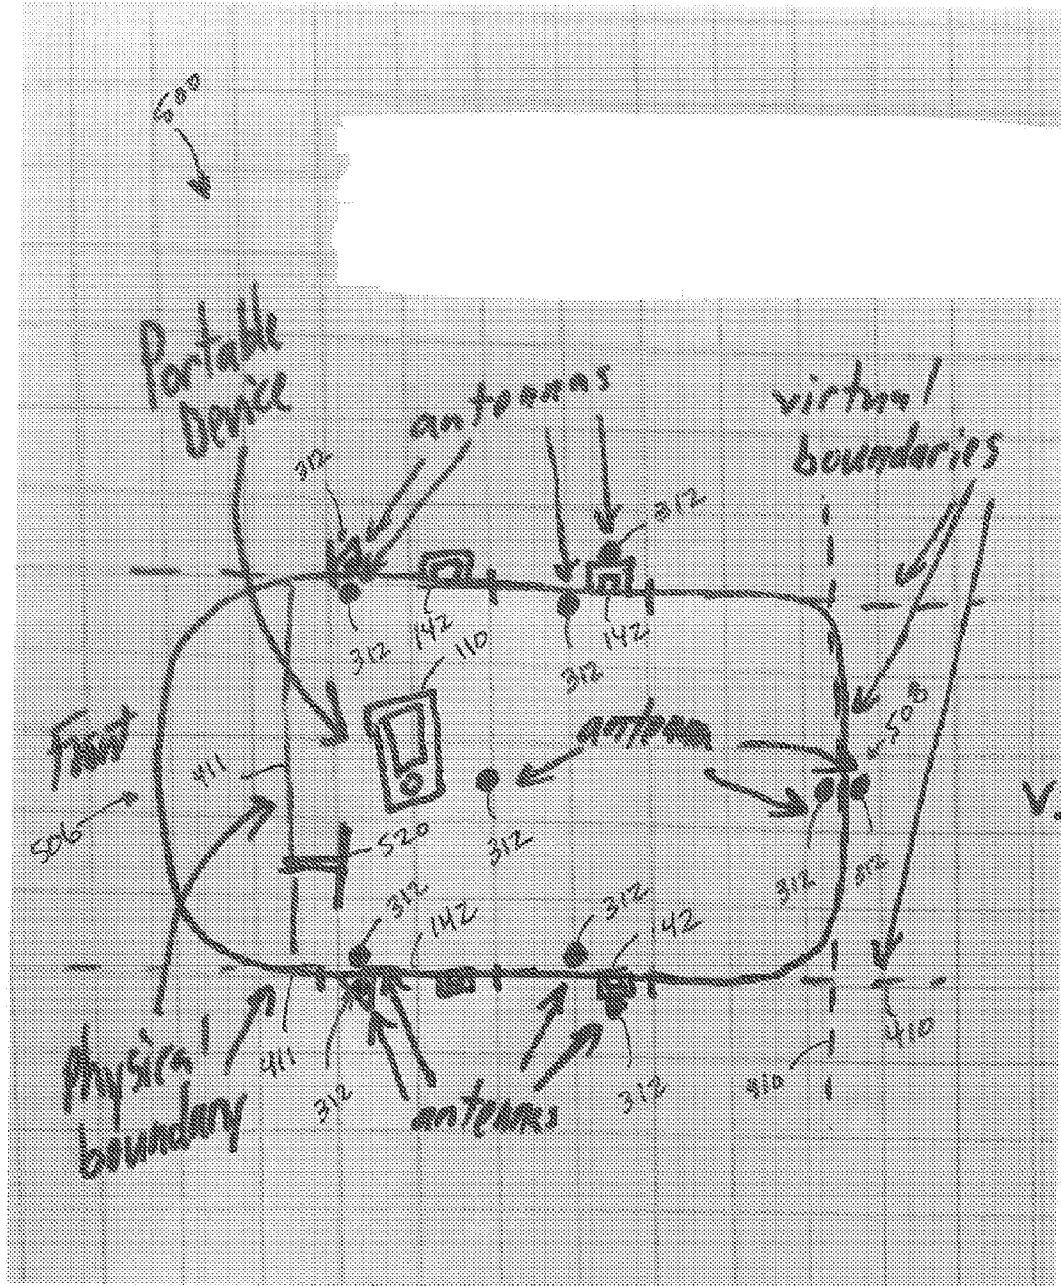 500
Portable
Device
antennas
virtual
boundaries
312
312
312
142
110
312
142
antenna
508
Front
411
506
V.
520
312
312
312
312
142
312
142
Physical
boundary
411
312
antennas
312
410
410